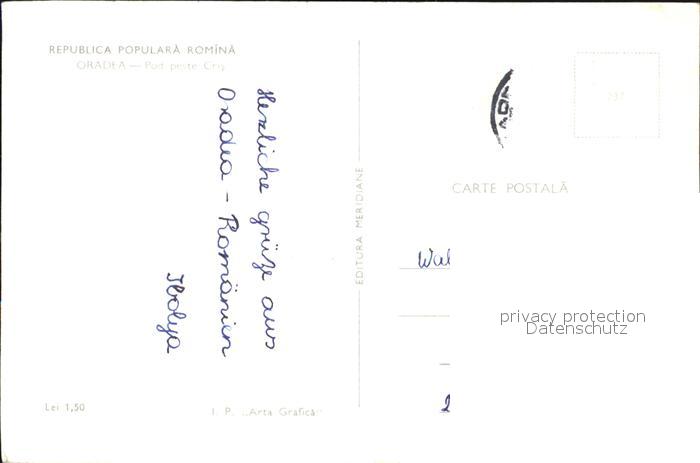 REPUBLICA POPULARĂ ROMÎNĂ
ORADEA — Pod peste Criș
Herzliche grüße aus
Oradea - Romänien
Ibolya
Lei 1,50
I. P. „Arta Grafică"
EDITURA MERIDIANE
CARTE POSTALĂ
Wal
2
privacy protection
Datenschutz